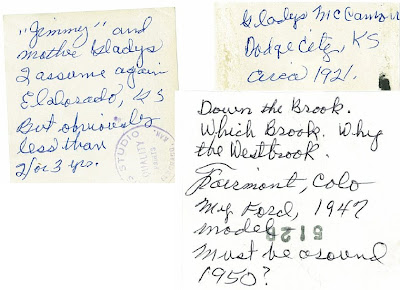 "Jimmy" and
mother Gladys
I assume again
Eldorado, KS
But obviously
less than
2 or 3 yrs.
STUDIO
QUALITY
Gladys McCammon
Dodge City, KS
circa 1921.
Down the Brook.
Which Brook. Why
the Westbrook.
Fairmont, Colo
My Ford, 1947
model
5128
Must be around
1950?